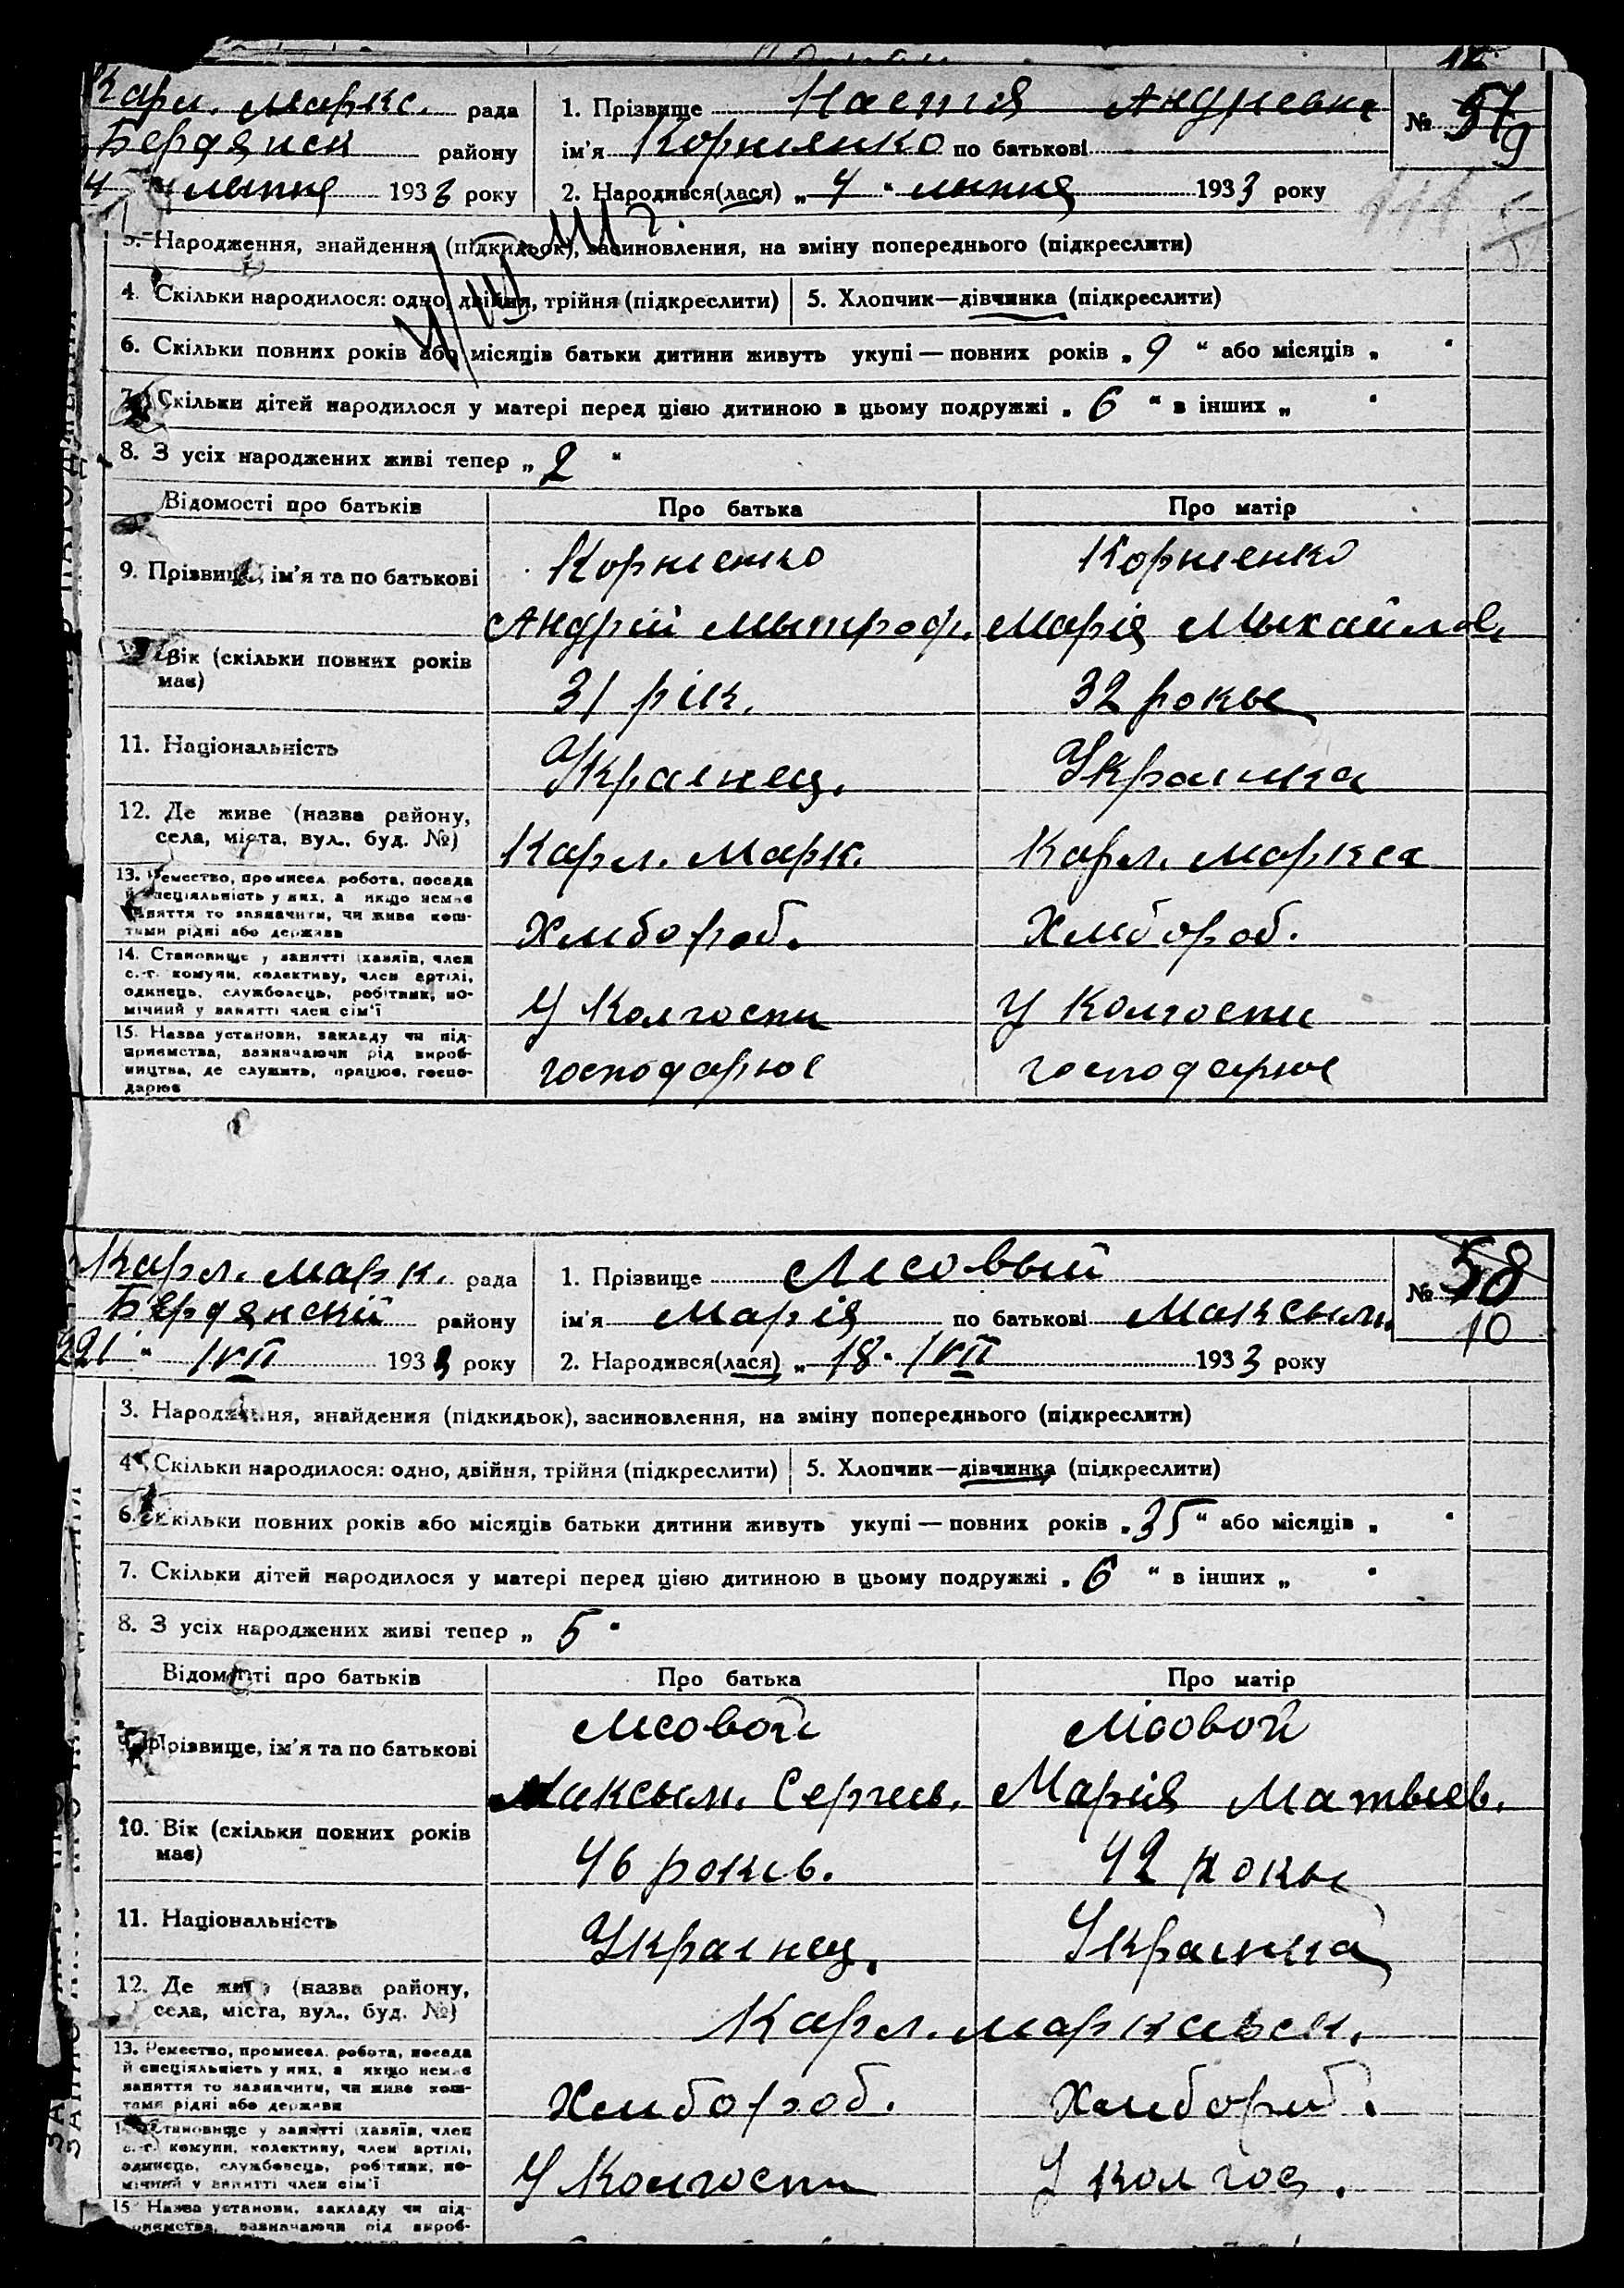 Карл. Маркс. рада
Бердянск району
4 липня 1933 року
1. Прізвище Настя Андриевна
ім'я Корниенко по батькові
2. Народився(лася) „ 4 " липня 1933 року
№ 57
9
3. Народження, знайдення (підкидьок), засиновлення, на зміну попереднього (підкреслити)
4. Скільки народилося: одно, двійня, трійня (підкреслити) 5. Хлопчик—дівчинка (підкреслити)
6. Скільки повних років або місяців батьки дитини живуть укупі — повних років „ 9 " або місяців „ "
7. Скільки дітей народилося у матері перед цією дитиною в цьому подружжі „ 6 " в інших „ "
8. З усіх народжених живі тепер „ 2 "
Відомості про батьків Про батька Про матір
9. Прізвище, ім'я та по батькові
Корниенко Корниенко
Андрій Мытроф. Марія Мыхайлов.
10. Вік (скільки повних років має)
31 рік. 32 рокы
11. Національність
Украінец. Украинка
12. Де живе (назва району,
села, міста, вул., буд. №)
Карл. Марк. Карл. Маркса
13. Ремество, промисел, робота, посада
й спеціяльність у них, а якщо немає
заняття то зазначити, чи живе кош-
тами рідні або держави
Хлибороб. Хлибороб.
14. Становище у занятті (хазяїн, член
с.-г. комуни, колективу, член артілі,
одинець, службовець, робітник, по-
мічний у занятті член сім'ї
У Колгоспи У Колгоспи
15. Назва установи, закладу чи під-
приємства, зазначаючи рід вироб-
ництва, де служить, працює, госпо-
дарює
господарює господарює
Карл. Марк. рада
Бердянский району
221 " IVII 1933 року
1. Прізвище Лісовый
ім'я Марія по батькові Максым.
2. Народився(лася) „ 18 " IVII 1933 року
№ 58
10
3. Народження, знайдення (підкидьок), засиновлення, на зміну попереднього (підкреслити)
4. Скільки народилося: одно, двійня, трійня (підкреслити) 5. Хлопчик—дівчинка (підкреслити)
6. Скільки повних років або місяців батьки дитини живуть укупі — повних років „ 35 " або місяців „ "
7. Скільки дітей народилося у матері перед цією дитиною в цьому подружжі „ 6 " в інших „ "
8. З усіх народжених живі тепер „ 5 "
Відомості про батьків Про батька Про матір
9. Прізвище, ім'я та по батькові
Лісовой Лісовой
Максым. Сергеев. Марія Матвыев.
10. Вік (скільки повних років має)
46 роков. 42 рокы
11. Національність
Украінец. Украинка
12. Де живе (назва району,
села, міста, вул., буд. №)
Карл. марксивск.
13. Ремество, промисел, робота, посада
й спеціяльність у них, а якщо немає
заняття то зазначити, чи живе кош-
тами рідні або держави
Хлибороб. Хлибороб.
14. Становище у занятті (хазяїн, член
с.-г. комуни, колективу, член артілі,
одинець, службовець, робітник, по-
мічний у занятті член сім'ї
У Колгоспи У колгос.
15. Назва установи, закладу чи під-
приємства, зазначаючи рід вироб-